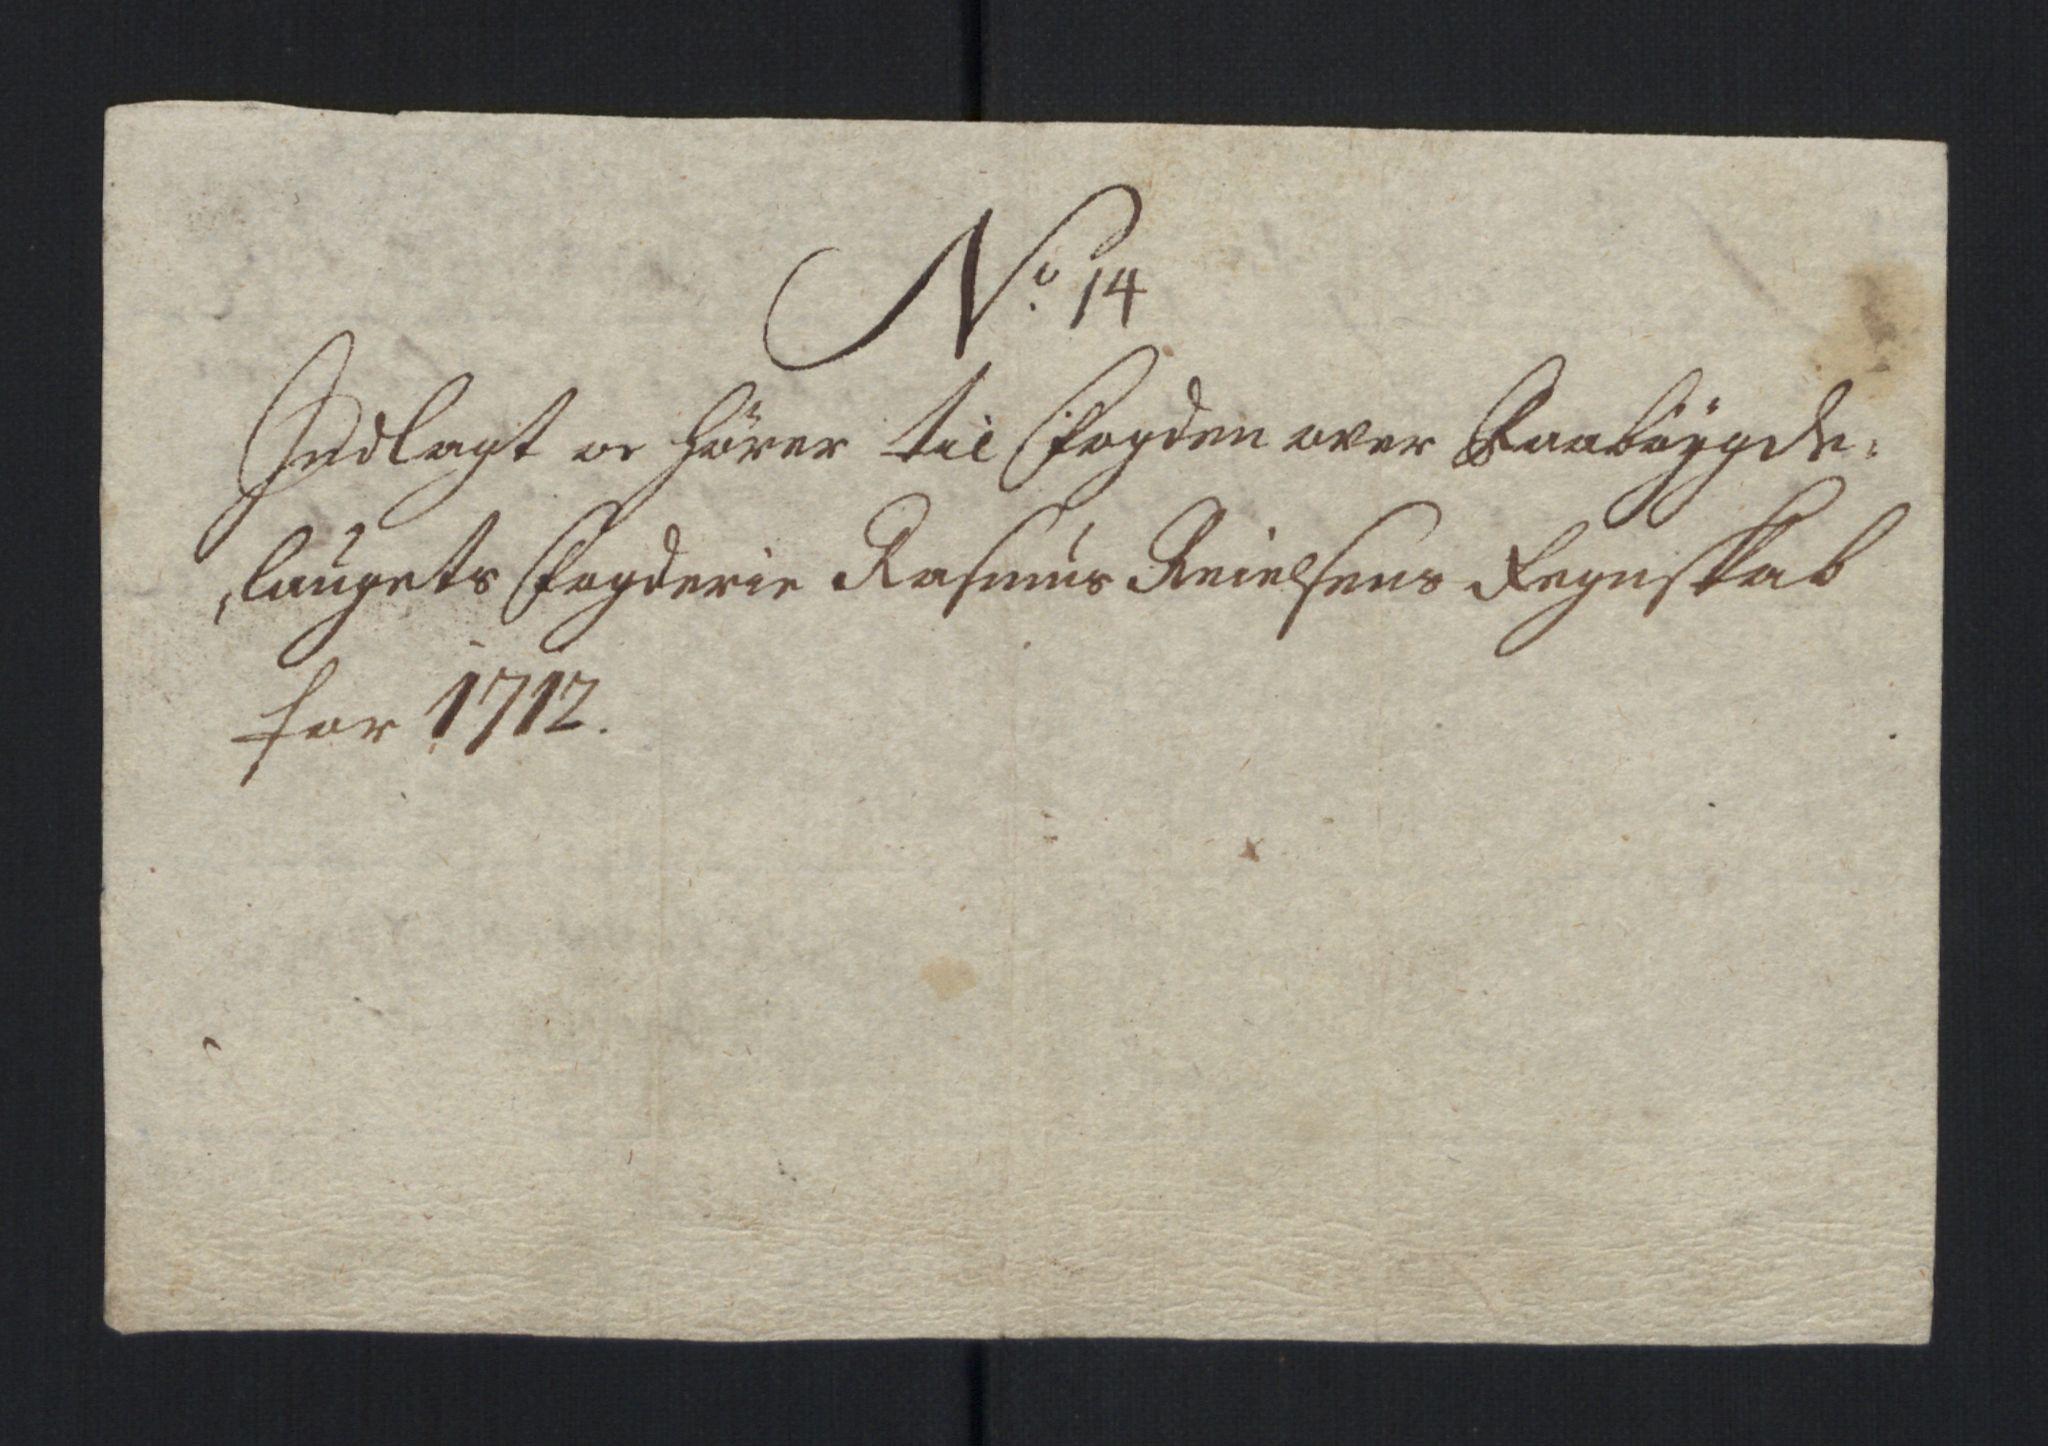 No 14
Indlagt oc hörer til Fogden over Raabÿgde:
laugets Fogderie Rasmus Reielsens Regnskab
for 1712.